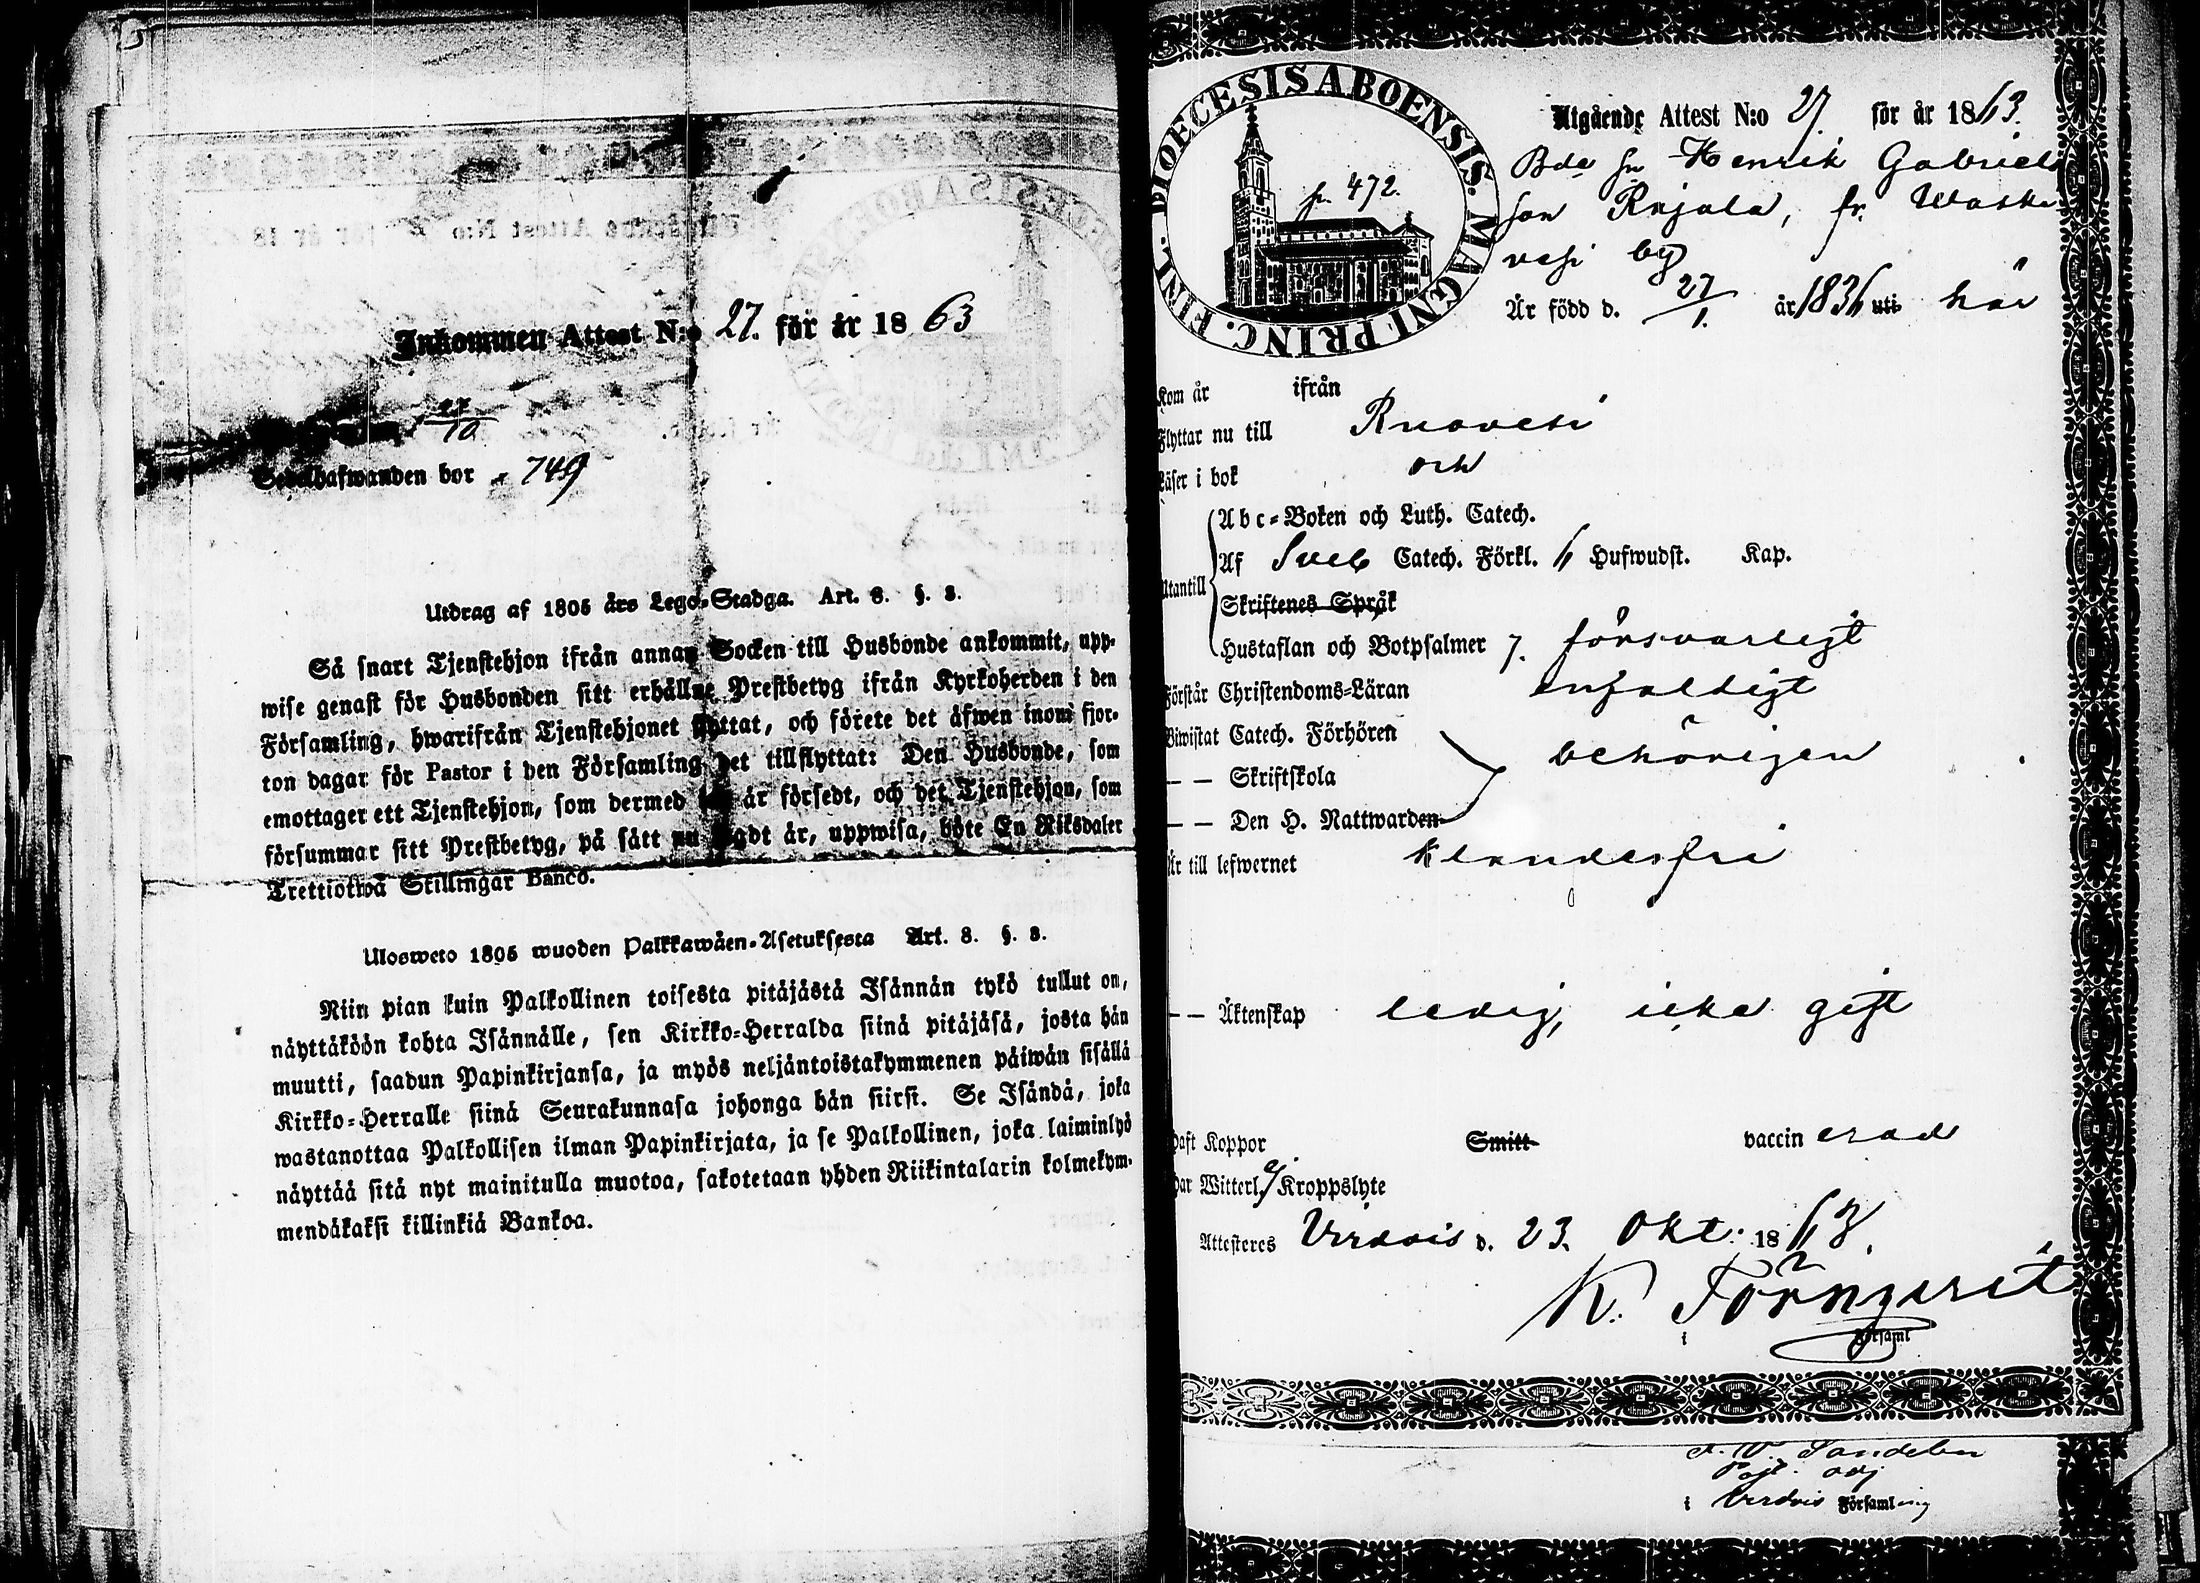 Inkommen Attest N:o 27. för år 1863
27/10
Sedelhafwanden bor p. 749
Utdrag af 1805 års Lego-Stadga. Art. 8. §. 8.
Så snart Tjenstehjon ifrån annan Socken till Husbonde ankommit, upp-
wise genast för Husbonden sitt erhållne Prestbetyg ifrån Kyrkoherden i den
Församling, hwarifrån Tjenstehjonet flyttat, och förete det äfwen inom fjor-
ton dagar för Pastor i den Församling det tillflyttat: Den Husbonde, som
emottager ett Tjenstehjon, som dermed ej är försedt, och det Tjenstehjon, som
försummar sitt Prestbetyg, på sätt nu sagdt är, uppwisa, böte En Riksdaler
Trettiotwå Skillingar Banco.
Ulosweto 1805 wuoden Palkkawäen-Asetuksesta Art. 8. §. 8.
Niin pian kuin Palkollinen toisesta pitäjästä Isännän tykö tullut on,
näyttäköön kohta Isännälle, sen Kirkko-Herralda siinä pitäjäsä, josta hän
muutti, saadun Papinkirjansa, ja myös neljäntoistakymmenen päiwän sisällä
Kirkko-Herralle siinä Seurakunnasa johonga hän siirsi. Se Isändä, joka
wastanottaa Palkollisen ilman Papinkirjata, ja se Palkollinen, joka laiminlyö
näyttää sitä nyt mainitulla muotoa, sakotetaan yhden Riikintalarin kolmekym-
mendäkaksi killinkiä Bankoa.
DIOECESIS ABOENSIS. MAGNI PRINC. FINL.
p. 472.
Utgående Attest N:o 27. för år 1863.
Bde sn Henrik Gabriels
son Rajala, fr. Waski
wesi by
Är född d. 27/1. år 1836 uti här
Kom år ifrån
Flyttar nu till Ruovesi
Läser i bok och
Utantill
Abc-Boken och Luth. Catech.
Af Sveb Catech. Förkl. 6 Hufwudst. Kap.
Skriftenes Språk
Hustaflan och Botpsalmer 7. försvarligt
Förstår Christendoms-Läran enfaldigt
Biwistat Catech. Förhören
— — Skriftskola behörigen
— — Den H. Nattwarden
Är till lefwernet klanderfri
— — Äktenskap ledig, icke gift
Haft Koppor Smitt vaccinerad
Har Witterl. ej Kroppslyte
Attesteres Virdois d. 23. Okt. 1863.
K. Törnqvist
i Församl
F. W. Sandeber
Past. adj
i Virdois Församling